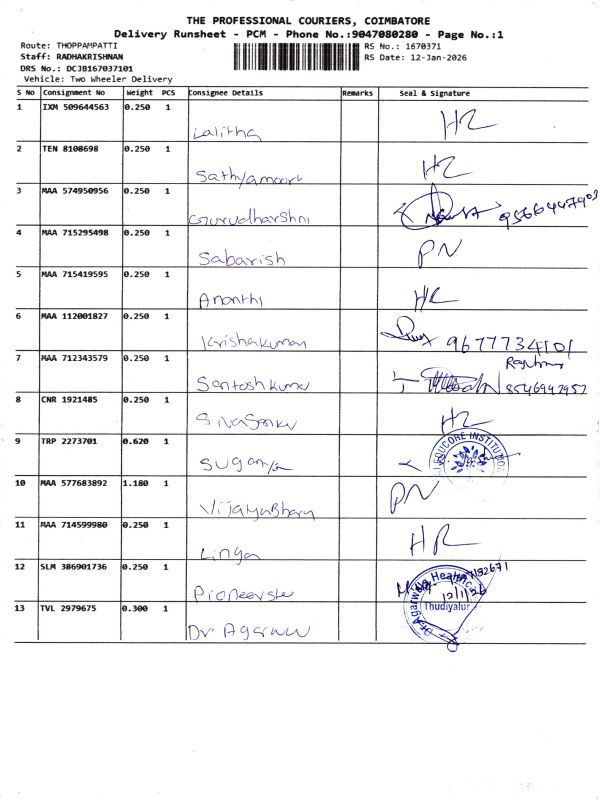 THE PROFESSIONAL COURIERS, COIMBATORE
Delivery Runsheet - PCM - Phone No.:9047080280 - Page No.:1
Route: THOPPAMPATTI
RS No.: 1670371
Staff: RADHAKRISHNAN
RS Date: 12-Jan-2026
DRS No.: DCJB167037101
Vehicle: Two Wheeler Delivery
S No Consignment No Weight PCS Consignee Details Remarks Seal & Signature
1 IXM 509644563 0.250 1
Lalitha
2 TEN 8108698 0.250 1
Sathyamoori
3 MAA 574950956 0.250 1
Gurudharshni
4 MAA 715295498 0.250 1
Sabarish PN
5 MAA 715419595 0.250 1
Ananthi
6 MAA 112001827 0.250 1
Krishakumar 9677734101
7 MAA 712343579 0.250 1
Santoshkumar 8546947957
8 CNR 1921485 0.250 1
9 TRP 2273701 0.620 1
EDUCORE INSTITUTION
Suganya
10 MAA 577683892 1.180 1 PN
11 MAA 714599980 0.250 1 HR
Linga
12 SLM 386901736 0.250 1
12/1/26
13 TVL 2979675 0.300 1
Dr Agarwal Health
Thudiyalur
Dr Agarwal